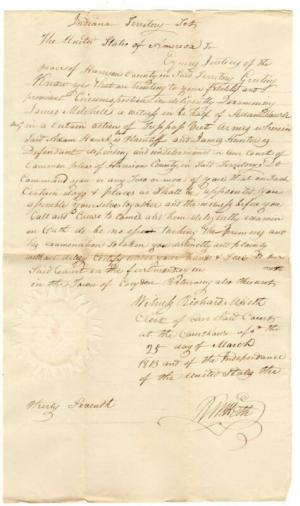 Indiana Territory Sct
The United States of America To
Esquires Justices of the
peace of Harrison County in said Territory Greeting
Know ye that we trusting to your fidelity and
provident Circumspection in diligently Examining
James Mitchell a witness in behalf of Adam
in a certain action of Trespass Vi et Armis wherein
said Adam is Plaintiff and James
Defendant depending and undetermined in our Court of
Common pleas of Harrison County in said Territory do
Command you or any Two or more of you that on such
Certain days & places as shall be appointed you
assemble yourselves together and the witness before you
Call and Cause to Come and him diligently examine
on Oath
his examination so taken you distinctly and plainly
without delay Certify under your hands & Seals to our
said Court on the first monday in next
in the Town of Corydon Returning also this writ
Witness Richard M Heth
Clerk of our said Court
at the Courthouse
25 day of March
1813 and of the Independence
of the United States the
Thirty Seventh
R M Heth